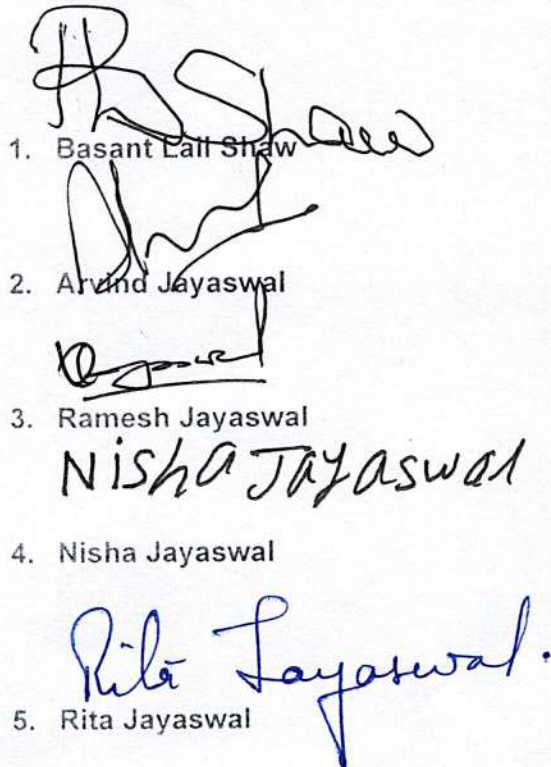 BL Shaw
1. Basant Lall Shaw
2. Arvind Jayaswal
3. Ramesh Jayaswal
Nisha Jayaswal
4. Nisha Jayaswal
Rita Jayaswal.
5. Rita Jayaswal